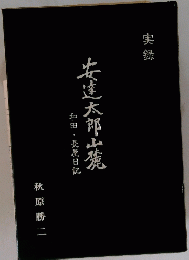 実録
安達太郎山麓
和田・長屋日記
秋原勝二